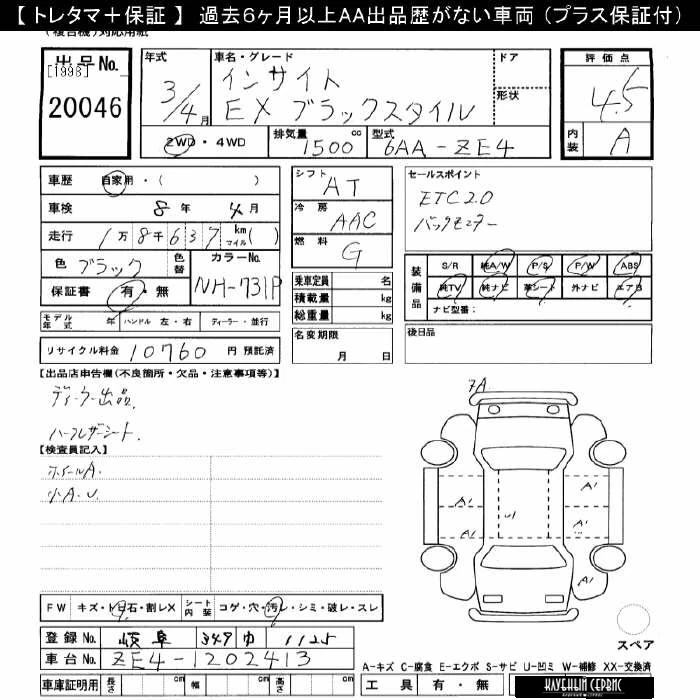 【 トレタマ＋保証 】 過去６ヶ月以上AA出品歴がない車両（プラス保証付）
(複合機)対応用紙
出品No.
[1998]
20046
年式
3/4月
車名・グレード
インサイト
EX ブラックスタイル
ドア
形状
2WD・4WD
排気量 1500 cc
型式 6AA-ZE4
評価点
4.5
内装 A
車歴 自家用・( )
車検 8年 4月
走行 1万8千637 kmマイル( )
色 ブラック 色替
カラーNo. NH-731P
保証書 有・無
モデル年式 年 ハンドル 左・右 ディーラー・並行
リサイクル料金 10760 円 預託済
シフト AT
冷房 AAC
燃料 G
乗車定員 名
積載量 kg
総重量 kg
名変期限
月 日
セールスポイント
ETC2.0
バックモニター
装備品
S/R 純A/W P/S P/W ABS
純TV 純ナビ 革シート 外ナビ エアB
ナビ型番：
後日品
【出品店申告欄(不良箇所・欠品・注意事項等)】
ディーラー出品.
ハーフレザーシート.
【検査員記入】
ホイールA.
小A.U.
7A
A1
A1
A1
U1
A1
A1
A1
FW キズ・トビ石・割レX シート内装 コゲ・穴・汚レ・シミ・破レ・スレ
登録No. 岐阜 349 ゆ 1125
車台No. ZE4-1202413
車庫証明用 長さ cm 幅 cm 高さ cm
スペア
A-キズ C-腐食 E-エクボ S-サビ U-凹ミ W-補修 XX-交換済
工具 有・無